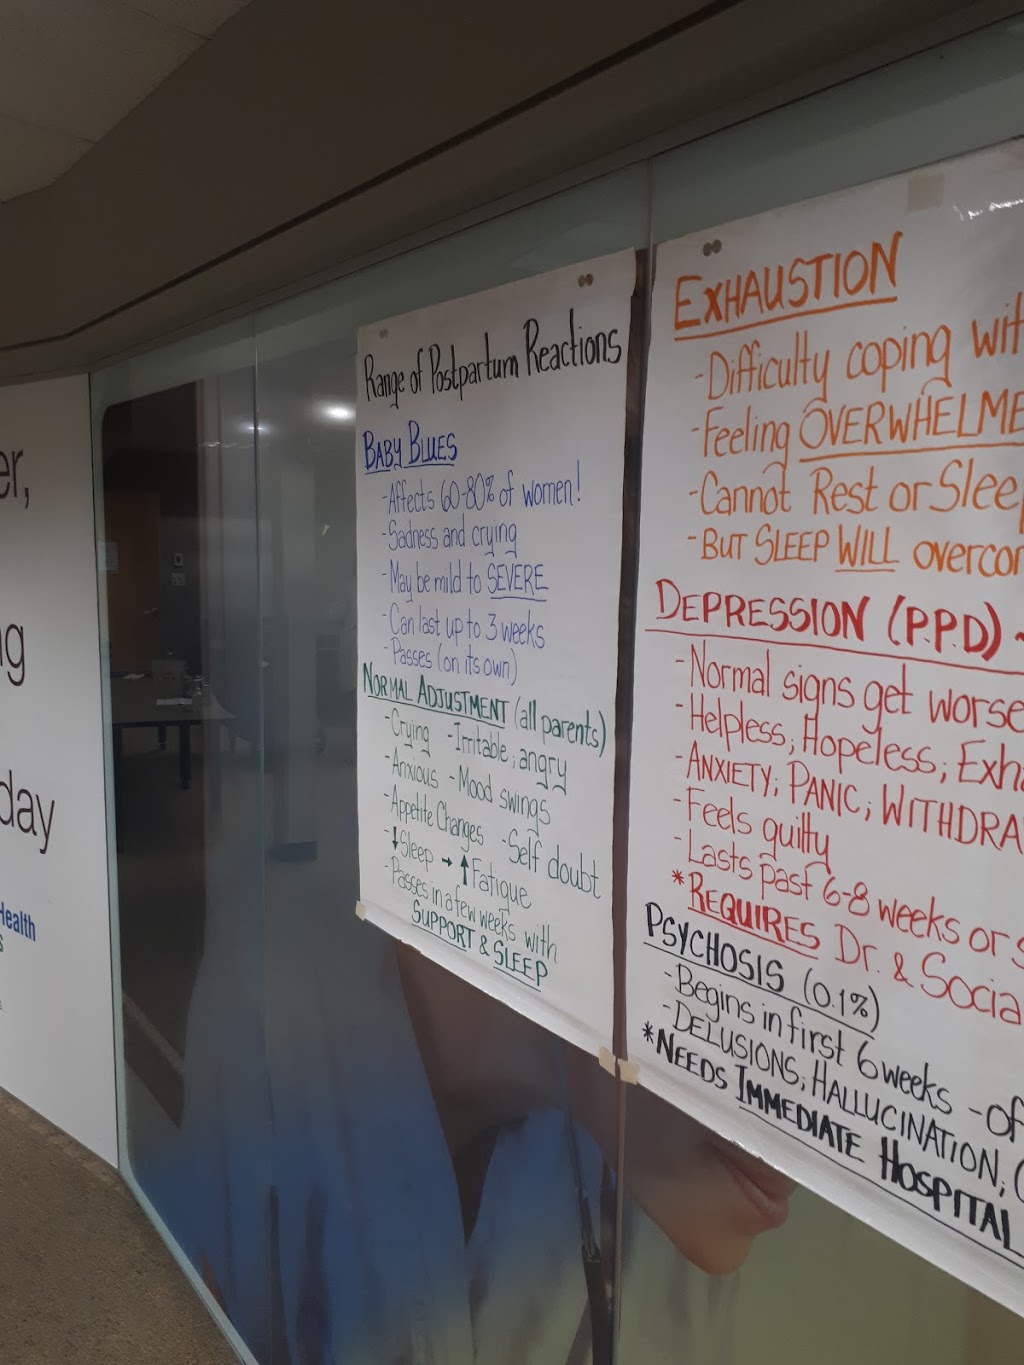 er,
ng
day
Health
Range of Postpartum Reactions
BABY BLUES
-Affects 60-80% of women!
-Sadness and crying
-May be mild to SEVERE
-Can last up to 3 weeks
-Passes (on its own)
NORMAL ADJUSTMENT (all parents)
-Crying -Irritable, angry
-Anxious -Mood swings
-Appetite Changes -Self doubt
-↓Sleep → ↑Fatigue
-Passes in a few weeks with
SUPPORT & SLEEP
EXHAUSTION
-Difficulty coping wit
-Feeling OVERWHELME
-Cannot Rest or Slee
-BUT SLEEP WILL overcom
DEPRESSION (P.P.D) ~
-Normal signs get worse
-Helpless, Hopeless, Exha
-ANXIETY, PANIC, WITHDRA
-Feels guilty
-Lasts past 6-8 weeks or s
*REQUIRES Dr. & Socia
PSYCHOSIS (0.1%)
-Begins in first 6 weeks -of
-DELUSIONS, HALLUCINATION, (
*NEEDS IMMEDIATE HOSPITAL